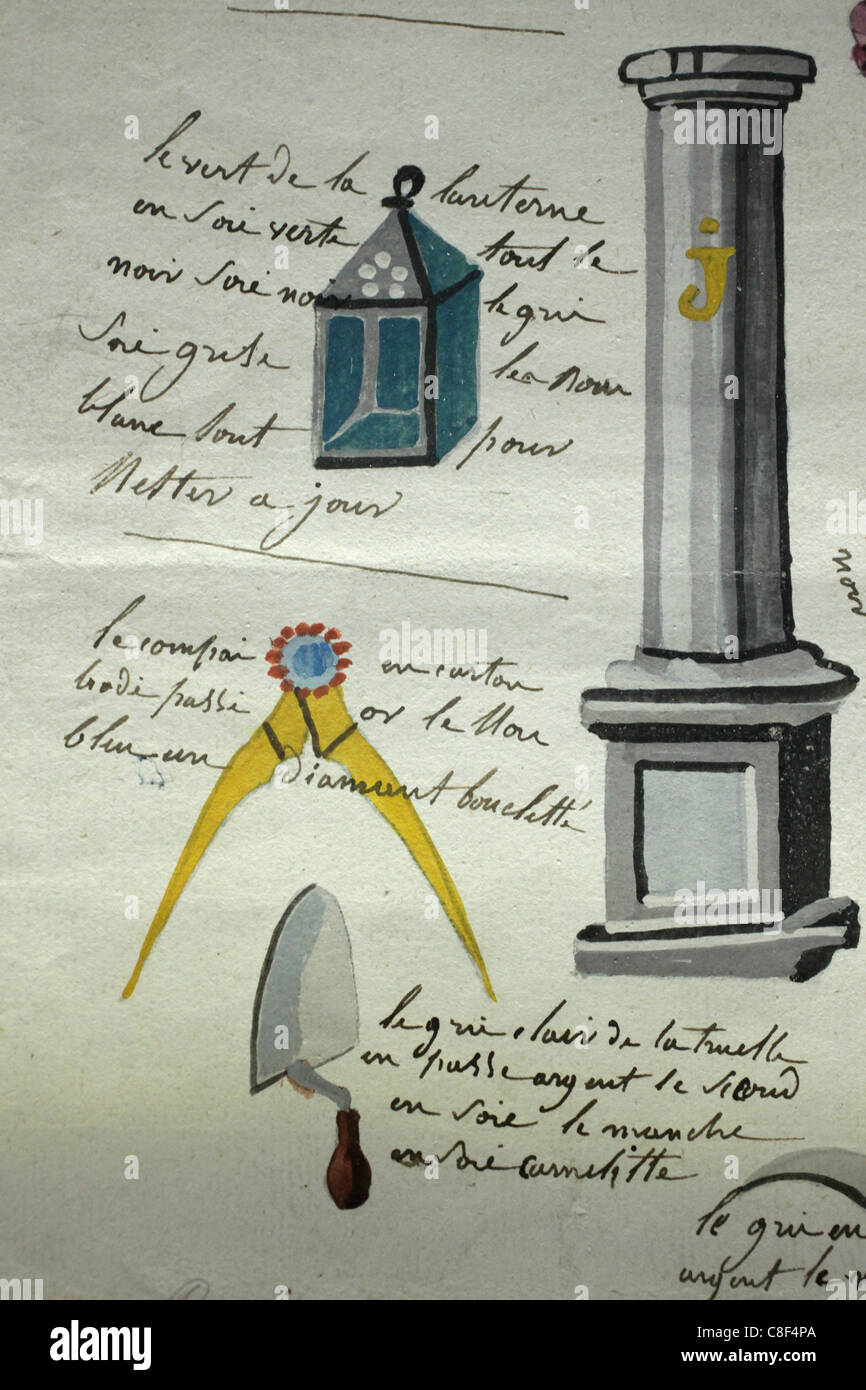 le vert de la lanterne
en soie verte tout le
noir soie noir le gris
soie grise les
blanc tout pour
Metter a jour
j
le compai en carton
brodé passé or le
bleu un diamant boucletté
le gris clair de la truelle
en passe argent le
en soie le manche
en soie carmelitte
le gris en
argent le
alamy
Image ID: C8F4PA
www.alamy.com